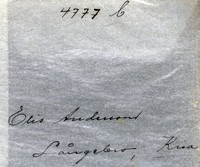 4777 C
Elis Andersson
Långebro, Krsa